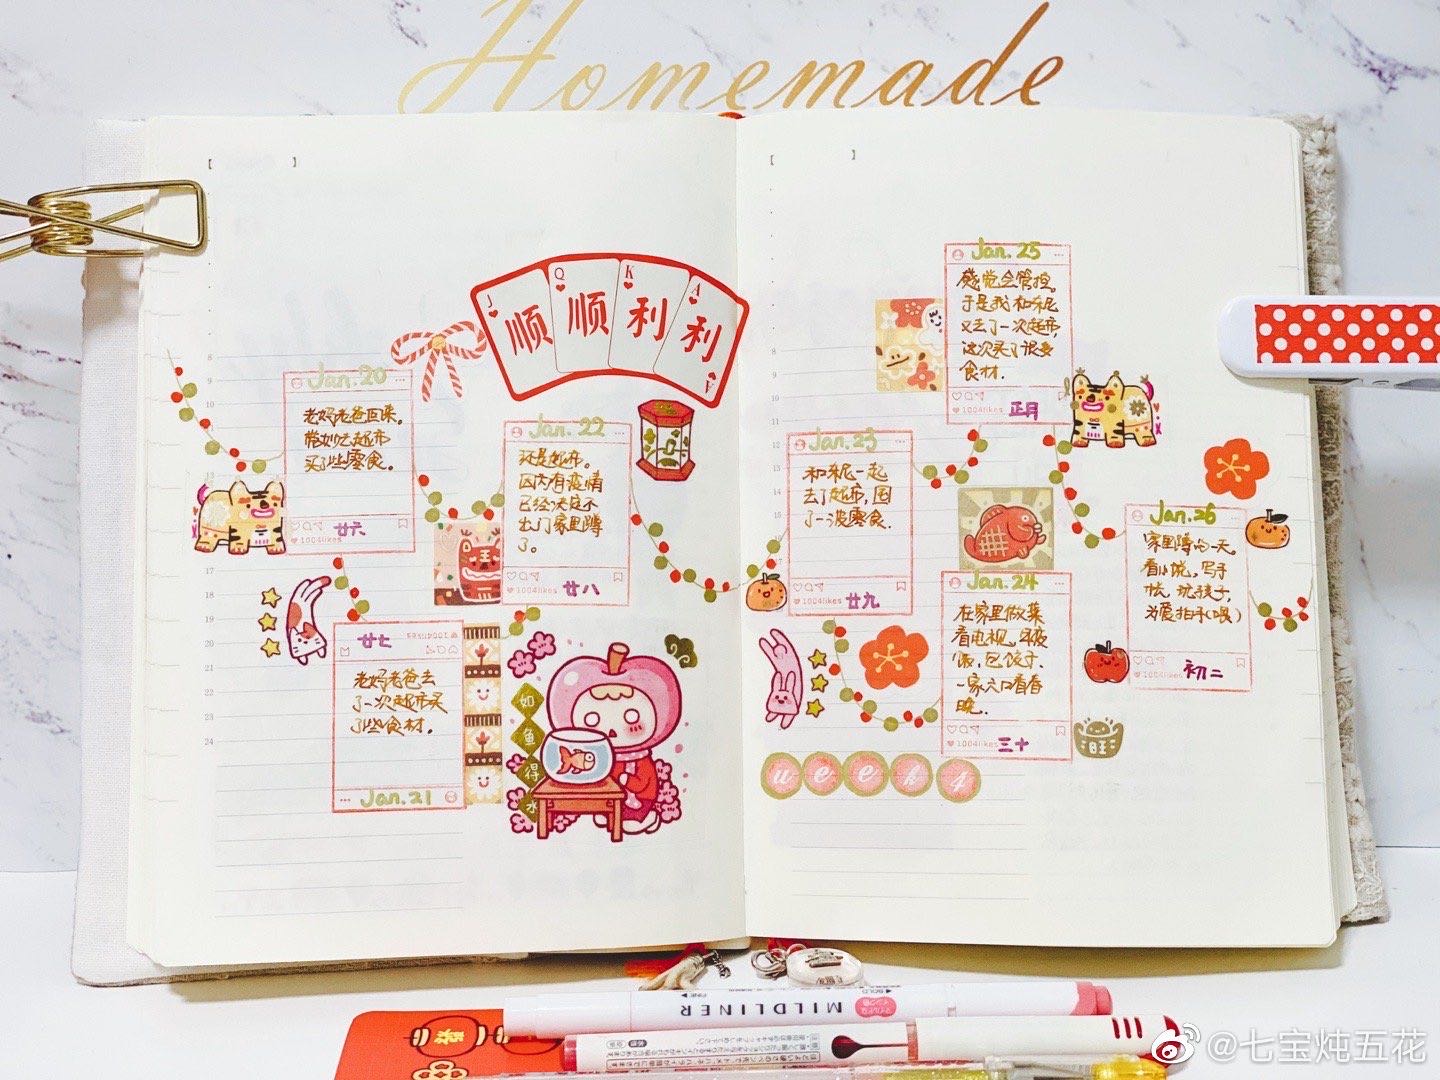 Homemade
【 】
【 】
J Q K A
顺顺利利
A
Jan.20
老妈老爸回来。
带如心去超市
买了些零食。
1004likes
廿六
廿七
1004likes
老妈老爸去
了一次超市买
了些食材。
Jan.21
Jan.22
还是超市。
因为有疫情
已经决定不
出门家里蹲
了。
1004likes
廿八
如鱼得水
8
9
13
17
18
19
20
21
22
23
24
Jan.23
和禾尼一起
去了超市,囤
了一波零食.
1004likes
廿九
Jan.24
在家里做菜
看电视。年夜
饭,包饺子.
一家六口看春
晚.
1004likes
三十
Jan.25
感觉会管控。
于是我和禾尼
又去了一次超市,
这次买了很多
食材.
1004likes
正月
Jan.26
家里蹲的一天。
看小说,写手
帐,玩孩子,
为爱拍手(喂)
1004likes
初二
旺
week4
MILDLINER
@七宝炖五花